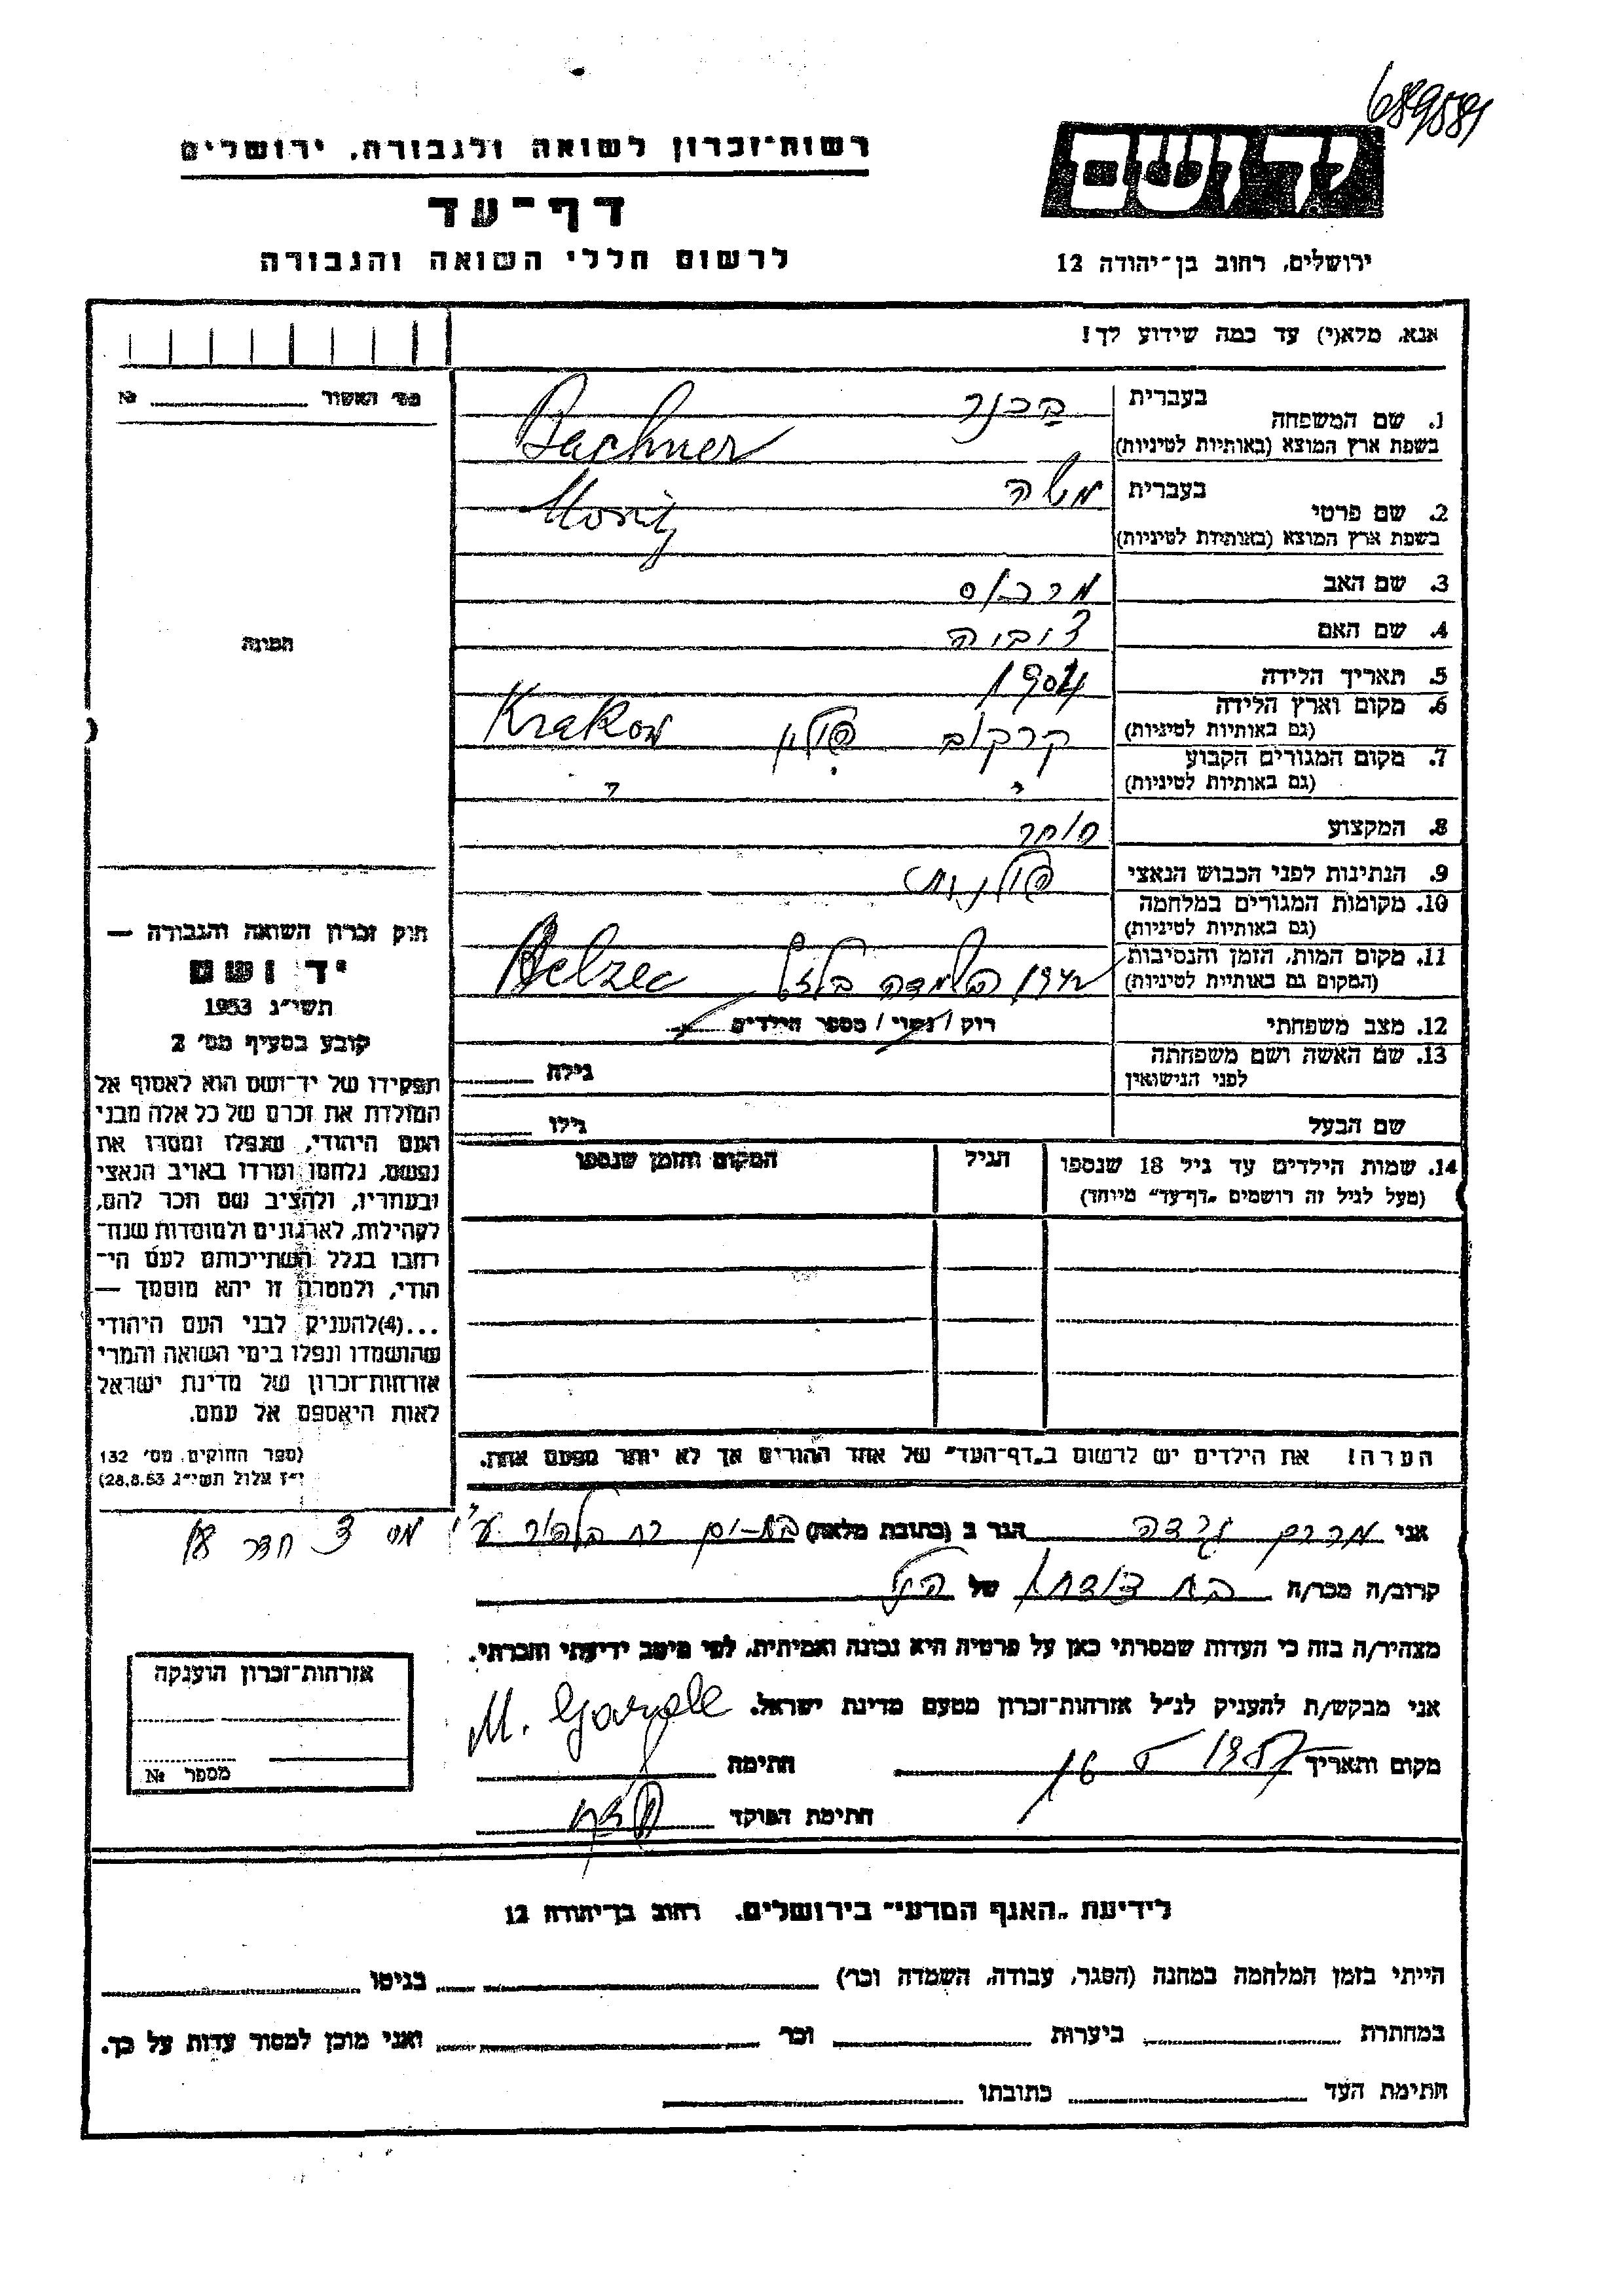 689581
רשות־זכרון לשואה ולגבורה, ירושלים
דף־עד
לרשום חללי השואה והגבורה
יד ושם
ירושלים, רחוב בן־יהודה 12
אנא, מלא(י) עד כמה שידוע לך!
מס' האשור № 
1. שם המשפחה
בעברית בכנר
בשפת ארץ המוצא (באותיות לטיניות) Bachner
2. שם פרטי
בעברית משה
בשפת ארץ המוצא (באותיות לטיניות) Moritz
3. שם האב מרכוס
4. שם האם
5. תאריך הלידה 1904
6. מקום וארץ הלידה קרקוב פולין Krakow
(גם באותיות לטיניות)
7. מקום המגורים הקבוע
(גם באותיות לטיניות)
8. המקצוע סוחר
9. הנתינות לפני הכבוש הנאצי פולנית
10. מקומות המגורים במלחמה
(גם באותיות לטיניות)
11. מקום המות, הזמן והנסיבות 1942 Belzec
(המקום גם באותיות לטיניות)
12. מצב משפחתי רווק / נשוי / מספר הילדים
13. שם האשה ושם משפחתה
לפני הנישואין
גילה
שם הבעל גילו
14. שמות הילדים עד גיל 18 שנספו הגיל המקום והזמן שנספו
(מעל לגיל זה רושמים "דף־עד" מיוחד)
הערה! את הילדים יש לרשום ב"דף־העד" של אחד ההורים אך לא יותר מפעם אחת.
תמונה
חוק זכרון השואה והגבורה —
יד ושם
תשי"ג 1953
קובע בסעיף מס' 2
תפקידו של יד־ושם הוא לאסוף אל
המולדת את זכרם של כל אלה מבני
העם היהודי, שנפלו ומסרו את
נפשם, נלחמו ומרדו באויב הנאצי
ובעוזריו, ולהציב שם וזכר להם,
לקהילות, לארגונים ולמוסדות שנח־
רבו בגלל השתייכותם לעם הי־
הודי, ולמטרה זו יהא מוסמך —
...(4)להעניק לבני העם היהודי
שהושמדו ונפלו בימי השואה והמרי
אזרחות־זכרון של מדינת ישראל
לאות היאספם אל עמם.
(ספר החוקים, מס' 132
י"ז אלול תשי"ג 28.8.53)
אני מרים הגר ב (כתובת מלאה) בת-ים רח חדר 18
קרוב/ה מכר/ה בת דודתו של הנ"ל
מצהיר/ה בזה כי העדות שמסרתי כאן על פרטיה היא נכונה ואמיתית, לפי מיטב ידיעתי והכרתי.
אני מבקש/ת להעניק לנ"ל אזרחות־זכרון מטעם מדינת ישראל.
מקום ותאריך 16 5 1957 חתימה M.
חתימת הפוקד
אזרחות־זכרון הוענקה
מספר №
לידיעת "האגף המדעי" בירושלים, רחוב בן־יהודה 12
הייתי בזמן המלחמה במחנה (הסגר, עבודה, השמדה וכו') בגיטו
במחתרת ביערות וכו' ואני מוכן למסור עדות על כך.
חתימת העד כתובתו